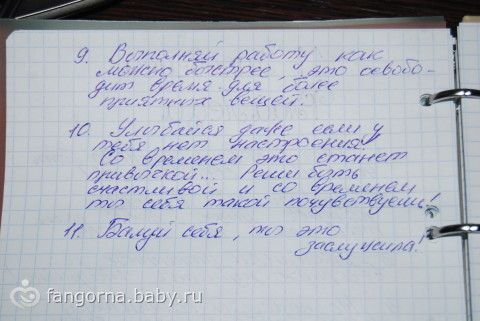 9. Выполняй работу как
можно быстрее, это освобо-
дит время для более
приятных вещей.
10. Улыбайся даже если у
тебя нет настроения!
Со временем это станет
привычкой... Реши быть
счастливой и со временем
ты себя такой почувствуешь!
11. Балуй себя, ты это
заслужила!
fangorna.baby.ru